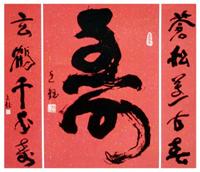 蒼松萬古春
壽
玄鶴千年壽